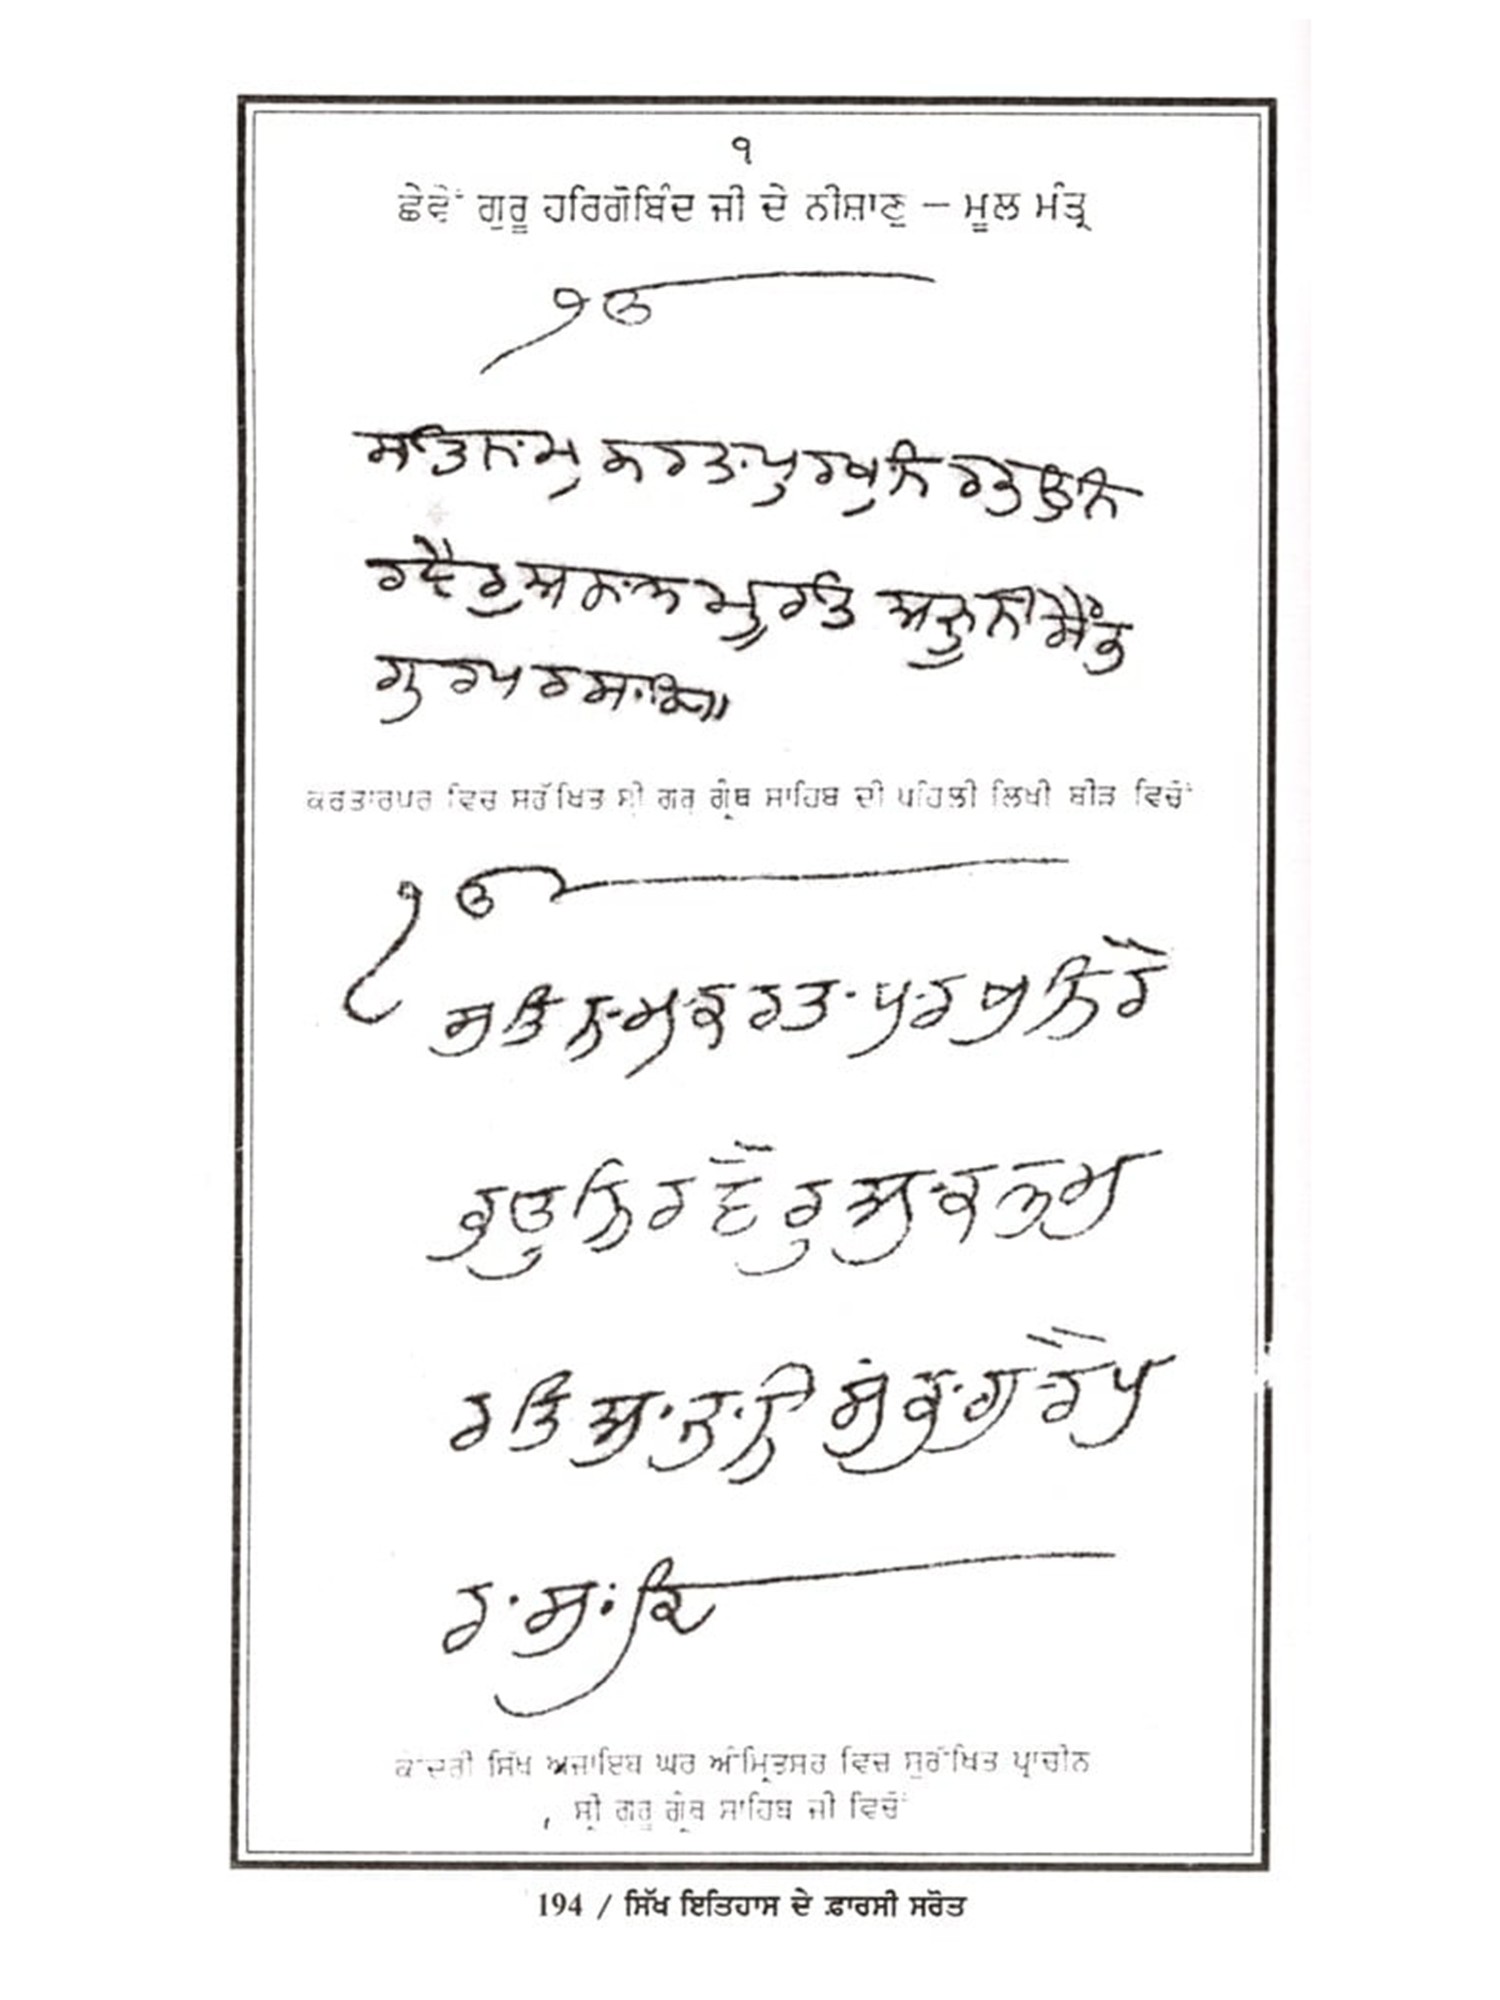 ੧
ਛੇਵੇਂ ਗੁਰੂ ਹਰਿਗੋਬਿੰਦ ਜੀ ਦੇ ਨੀਸ਼ਾਣੁ — ਮੂਲ ਮੰਤ੍ਰ
ੴ
ਸਤਿਨਾਮੁ ਕਰਤਾਪੁਰਖੁਨਿਰਭਉਨਿ
ਰਵੈਰੁਅਕਾਲਮੂਰਤਿ ਅਜੂਨੀਸੈਭੰ
ਗੁਰਪਰਸਾਦਿ॥
ਕਰਤਾਰਪੁਰ ਵਿਚ ਸੁਰੱਖਿਤ ਸ੍ਰੀ ਗੁਰੂ ਗ੍ਰੰਥ ਸਾਹਿਬ ਦੀ ਪਹਿਲੀ ਲਿਖੀ ਬੀੜ ਵਿਚੋਂ
ੴ
ਸਤਿਨਾਮੁਕਰਤਾਪੁਰਖੁਨਿਰੈ
ਭਉਨਿਰਵੈਰੁਅਕਾਲਮੂ
ਰਤਿਅਜੂਨੀ ਸੰਭਉਗੁਰੈਪ
ਰਸਾਦਿ
ਕੇਂਦਰੀ ਸਿੱਖ ਅਜਾਇਬ ਘਰ ਅੰਮ੍ਰਿਤਸਰ ਵਿਚ ਸੁਰੱਖਿਤ ਪ੍ਰਾਚੀਨ
ਸ੍ਰੀ ਗੁਰੂ ਗ੍ਰੰਥ ਸਾਹਿਬ ਜੀ ਵਿਚੋਂ
194 / ਸਿੱਖ ਇਤਿਹਾਸ ਦੇ ਫ਼ਾਰਸੀ ਸਰੋਤ